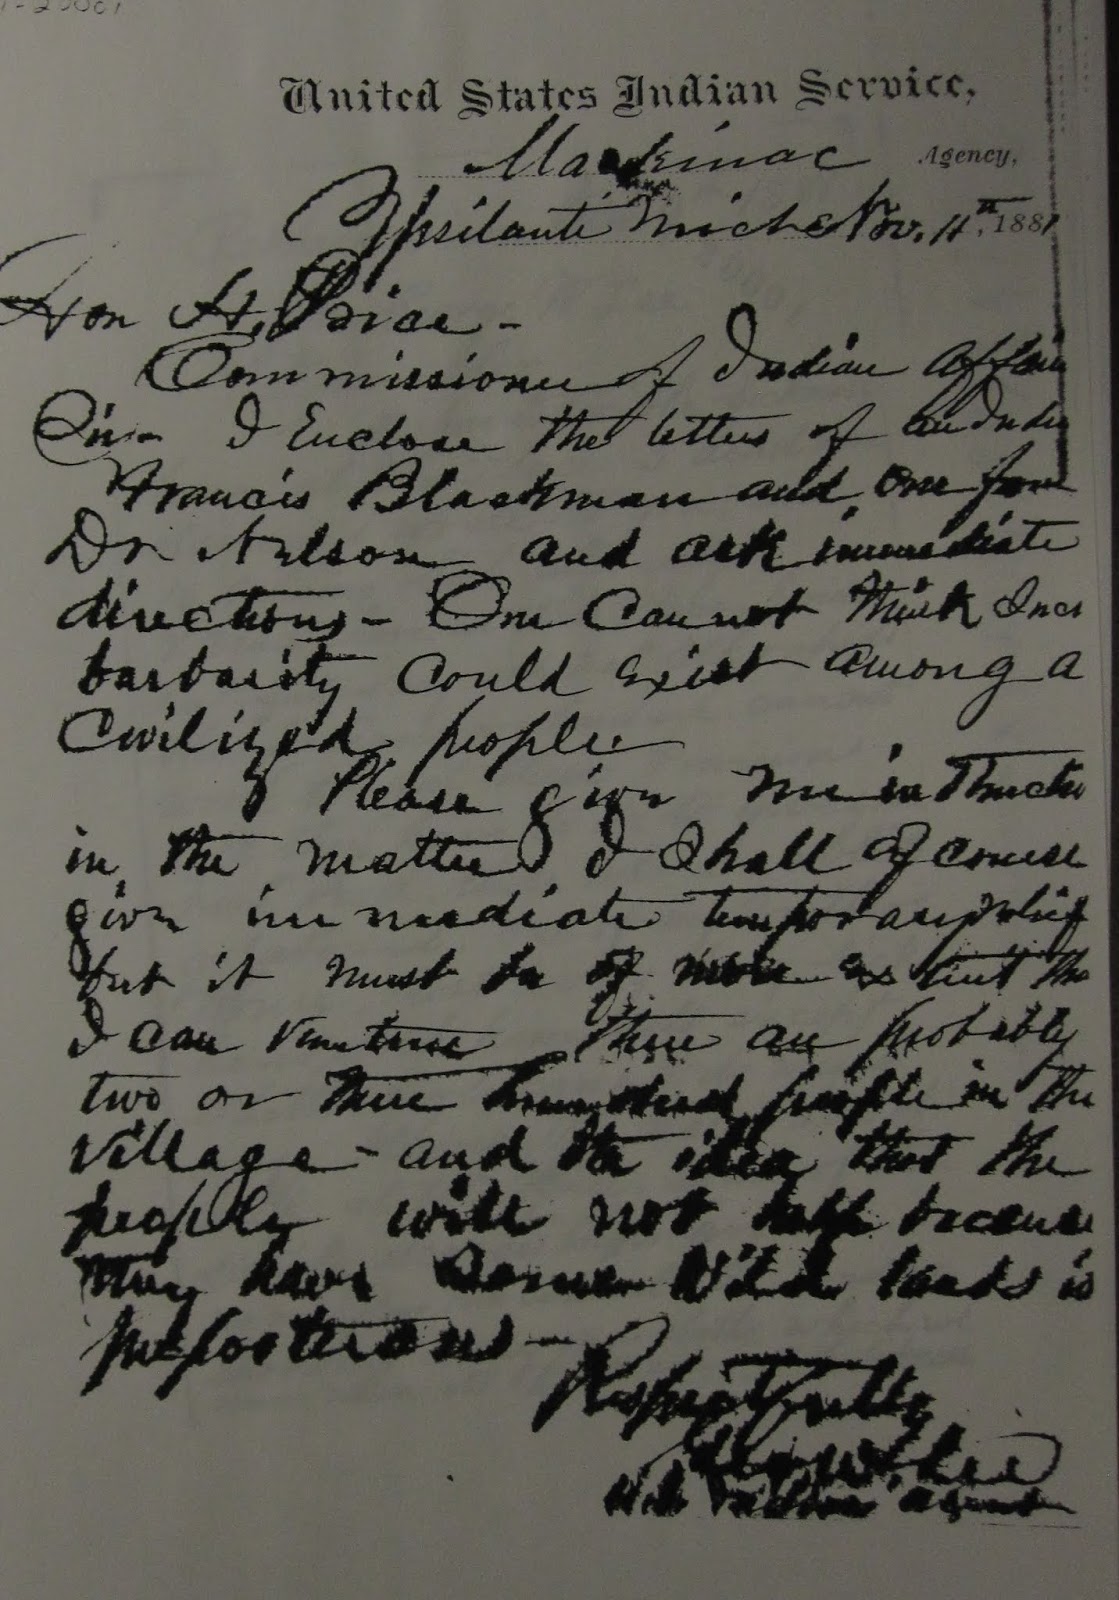 United States Indian Service,
Mackinac Agency,
Ypsilanti Mich Nov. 11th, 1881
Hon H. Price -
Commissioner of Indian Affair
Sir - I Enclose the letters of an Indn
Francis Blackman and one from
Dr Nelson and ask immediate
directions - One Cannot think
barbarity could exist among a
Civilized people
Please give me instructi
in the matter I shall of course
give immediate temporary relief
but it must be of more extent tha
I can venture There are probably
two or three hundred people in the
village - and the idea that the
people will not help because
they have some Wild lands is
preposterous -
Respectfully
Geo W Lee
U.S. Indian Agent